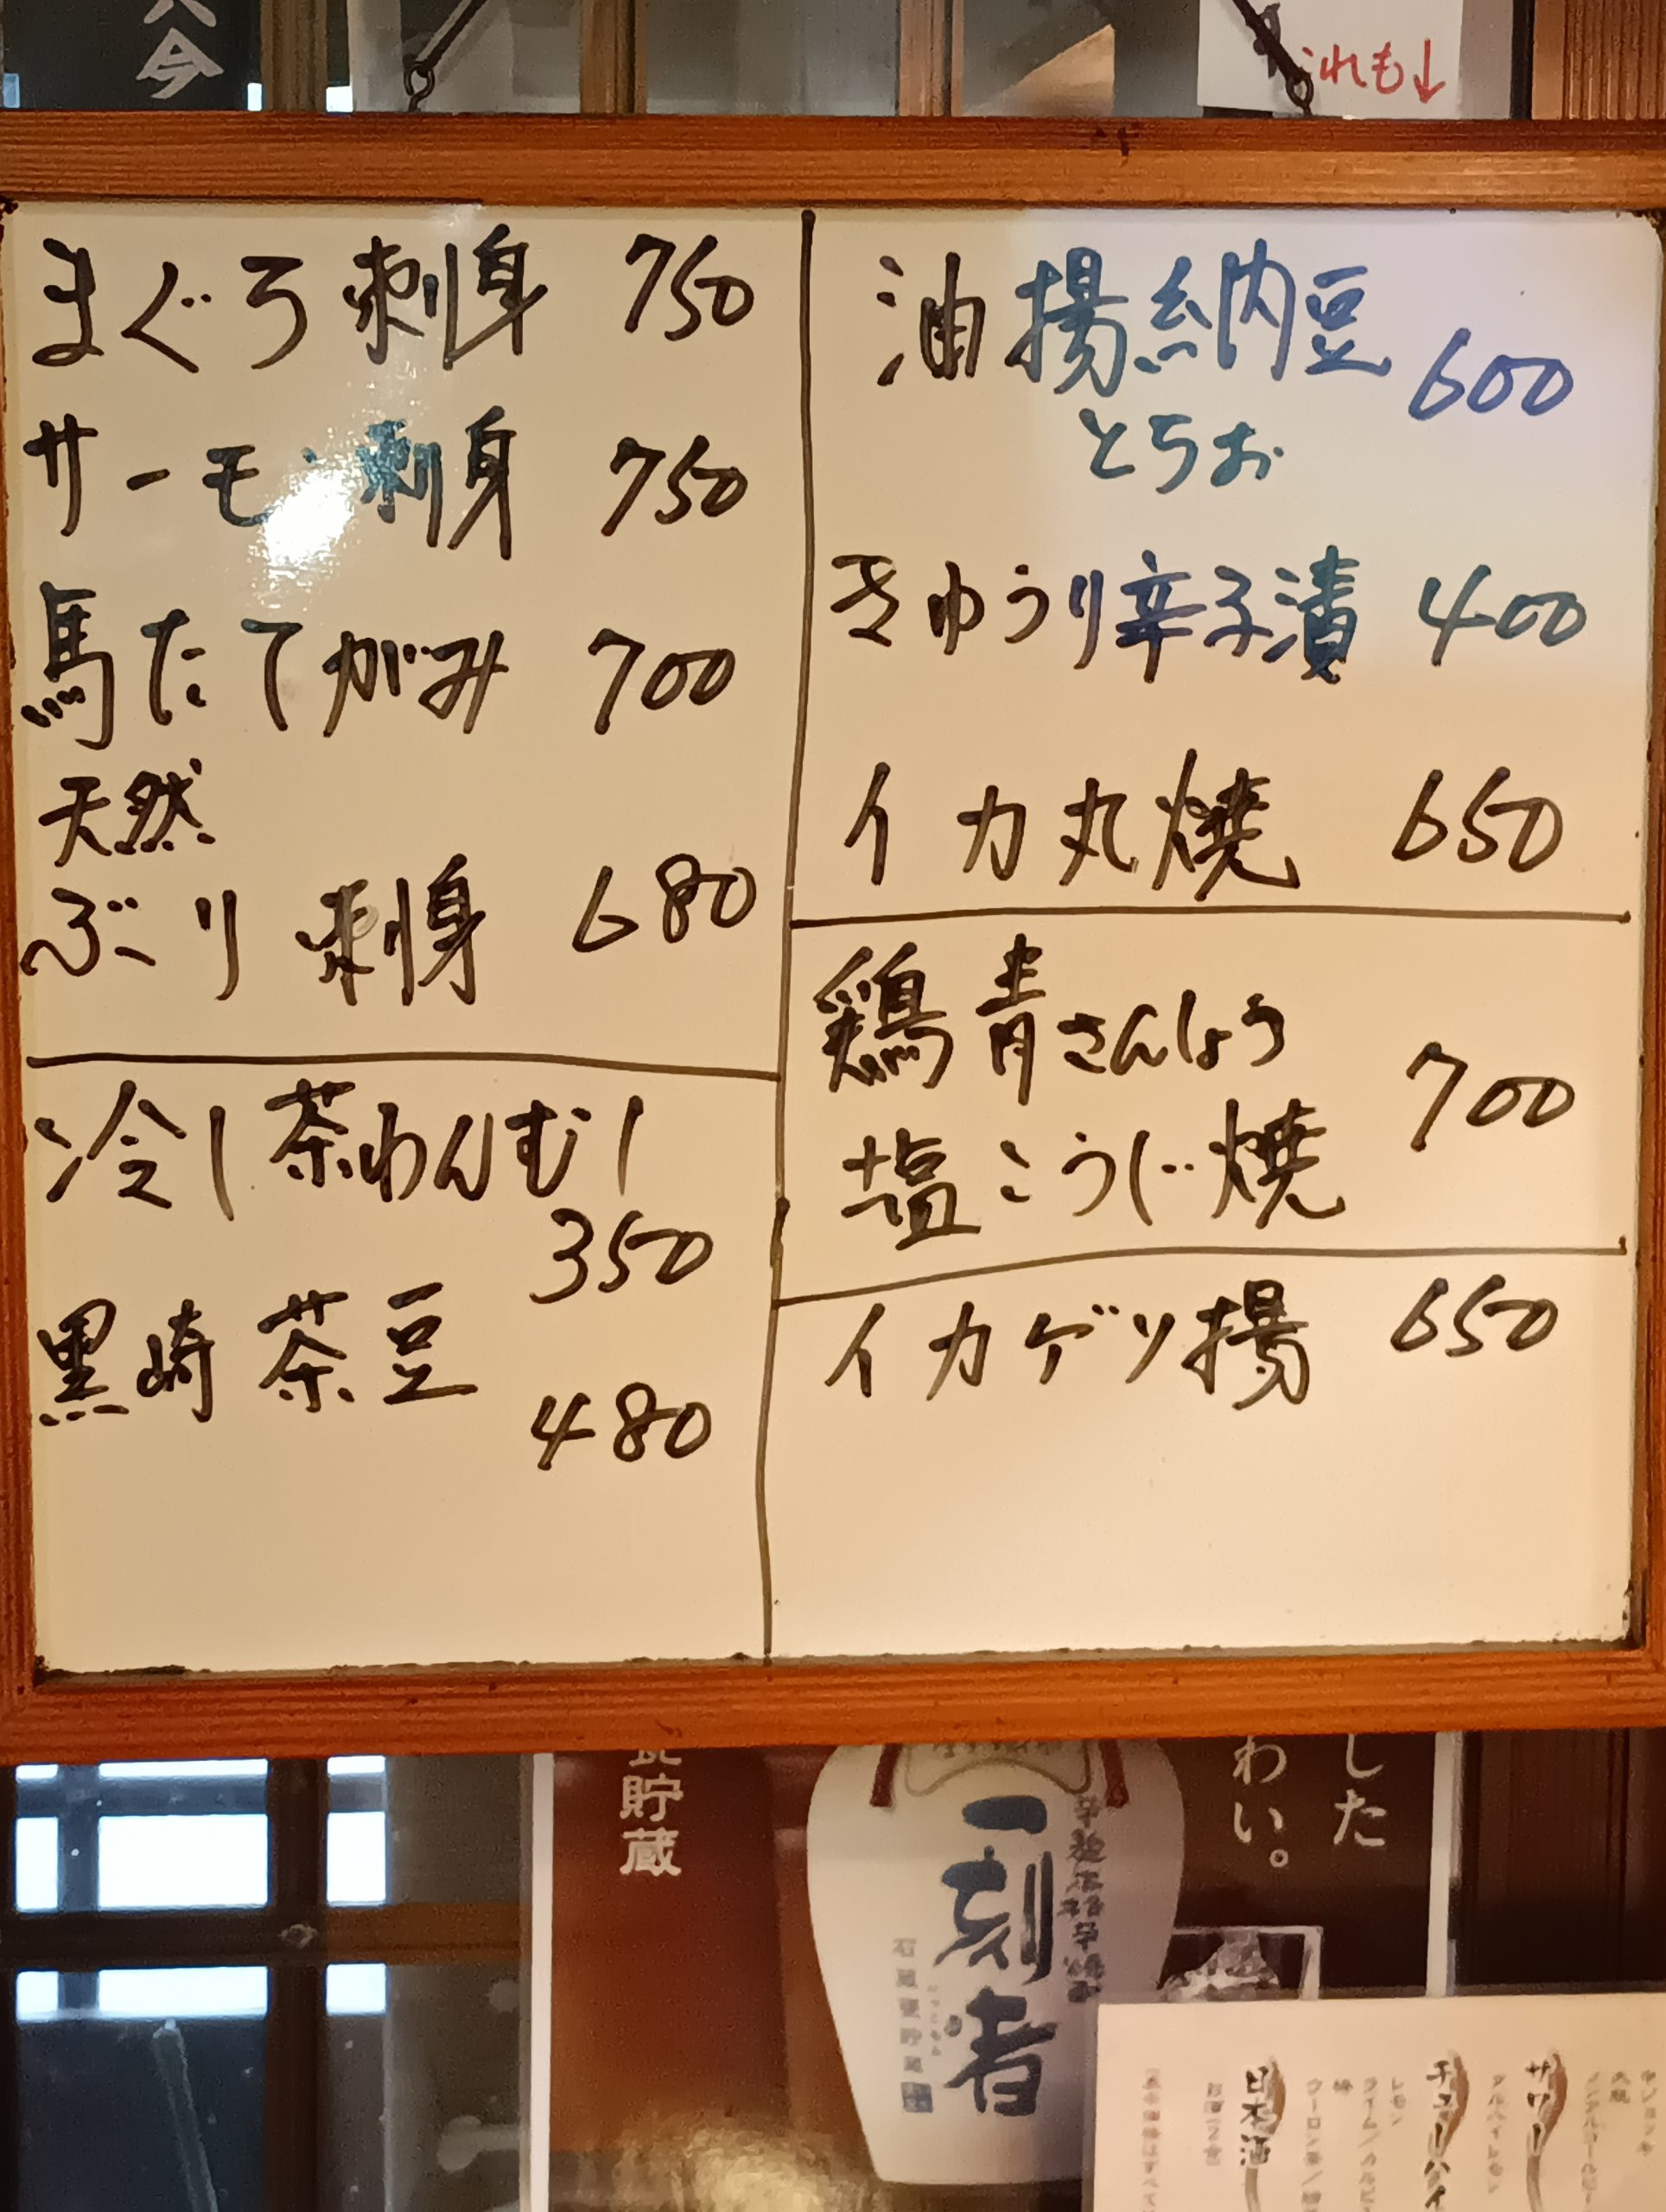 これも↓
まぐろ刺身 750
サーモン刺身 750
馬たてがみ 700
天然
ぶり刺身 680
冷し茶わんむし
350
黒崎茶豆
480
油揚納豆 600
とちお
きゅうり辛子漬 400
イカ丸焼 650
鶏青さんしょう
塩こうじ焼 700
イカゲソ揚 650
貯蔵
一刻者
した
わい。
日本酒
チューハイ
サワー